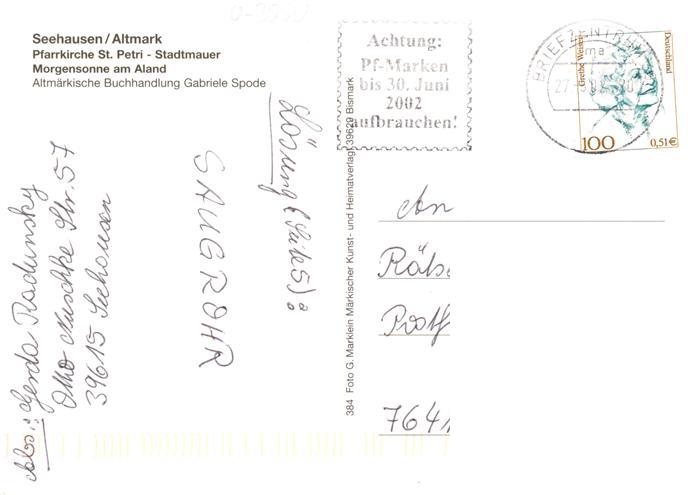 Seehausen/Altmark
Pfarrkirche St. Petri - Stadtmauer
Morgensonne am Aland
Altmärkische Buchhandlung Gabriele Spode
Achtung:
Pf-Marken
bis 30. Juni
2002
aufbrauchen!
BRIEFZENTRUM
Grethe Weiser
Deutschland
100
0,51€
Lösung (Seite 5):
SAUGROHR
Abs.: Gerda Radunsky
Otto Nuschke Str. 57
39615 Seehausen
384 Foto G. Marklein Märkischer Kunst- und Heimatverlag 39629 Bismark
An
Räts
Postf
7641